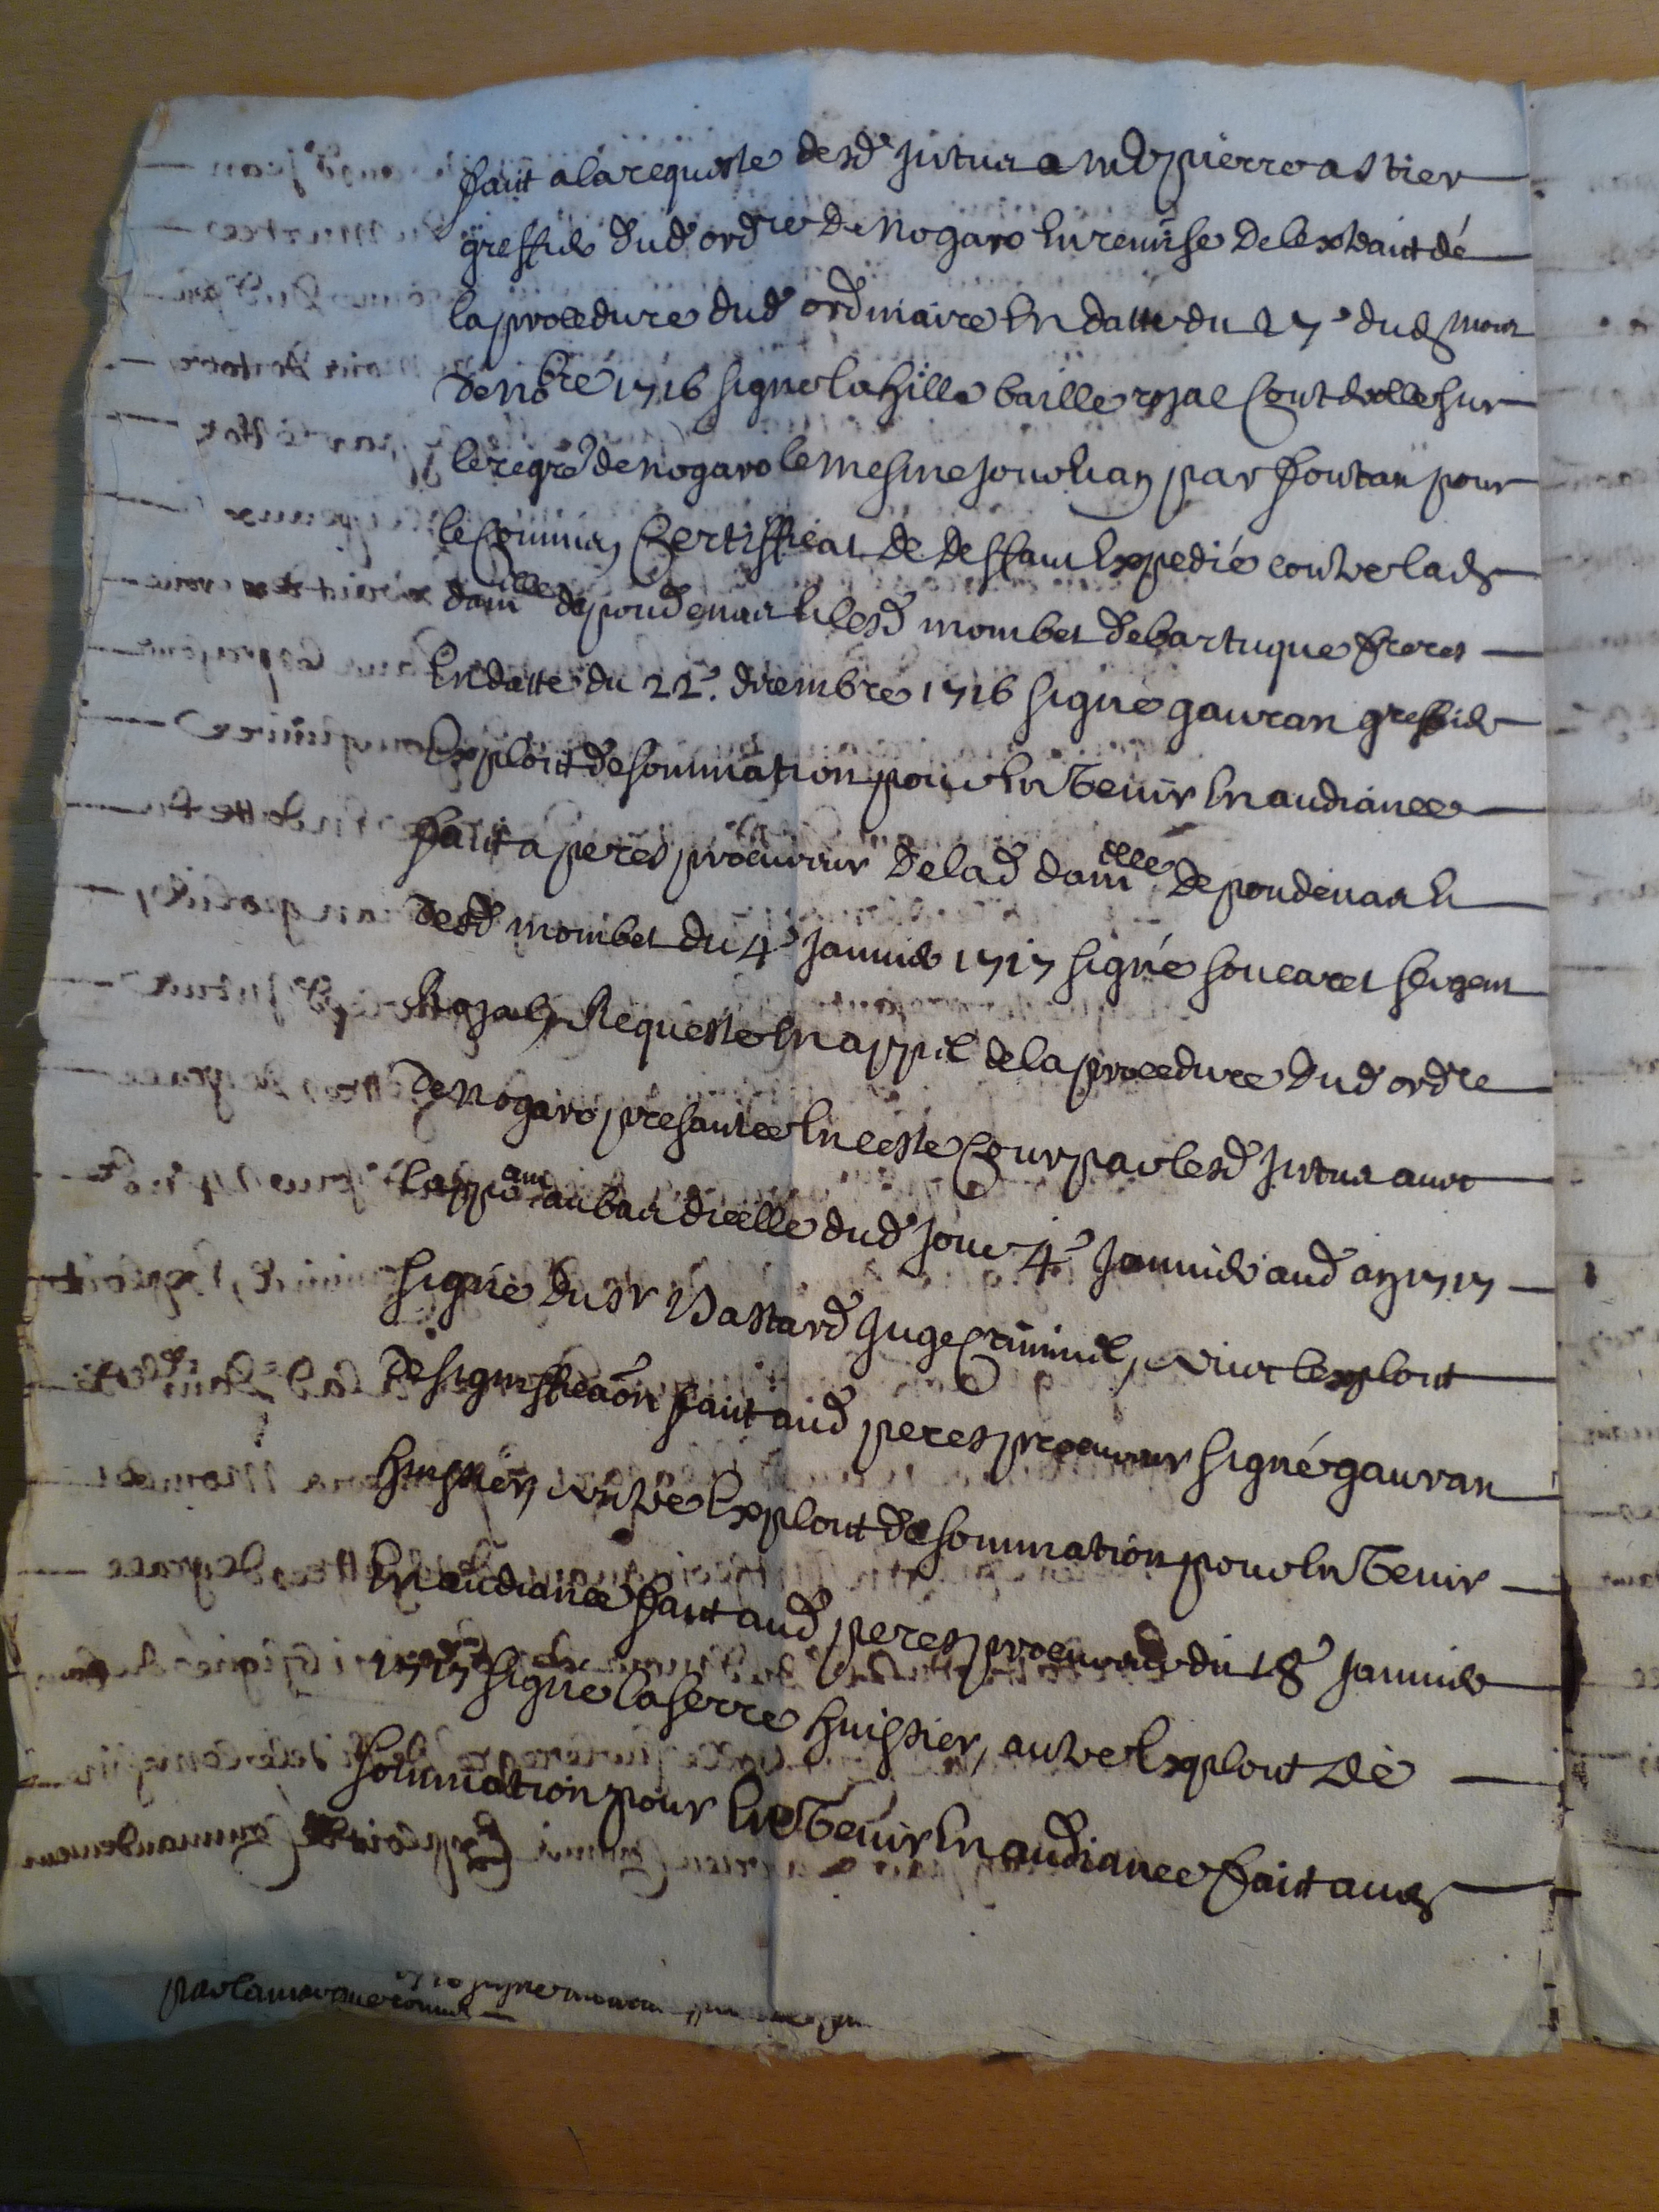 fait a la requeste desd. Jntras a me pierre astier
greffier dud. ordre de nogaro En remise de lextrait de
la procedure dud. ordinaire En datte du 27e dud mois
de nobre 1716 signe lahille baille royal Controlle sur
le regre de nogaro le mesme jour & an par foutan pour
le Commis, Certifficat de deffaut Expedié contre lad
damlle de poudenas & lesd mombet de bartuque freres
En datte du 22e. dixembre 1716 signé gauran greffier
Exploit de sommation pour En Venir En audiance
fait a peres procureur de lad damelle de poudenas &
desd mombet du 4e Janvier 1717 signé soucaret sergent
Royal, Requeste En appel de la procedure dud ordre
de nogaro presantee En ceste Cour par lesd Jntras avec
lappoam au bas dicelle dud. jour 4e Janvier aud an 1717
signé du sr Bastard Juge Criminel, lexploit
de signifficaõn fait aud peres procureur signé gauran
huissier, autre Exploit de sommation pour En Venir
En audiance fait aud peres procureur du 18e Janvier
1717 signé laserre huissier, autre Exploit de
sommation pour En Venir En audiance fait aud